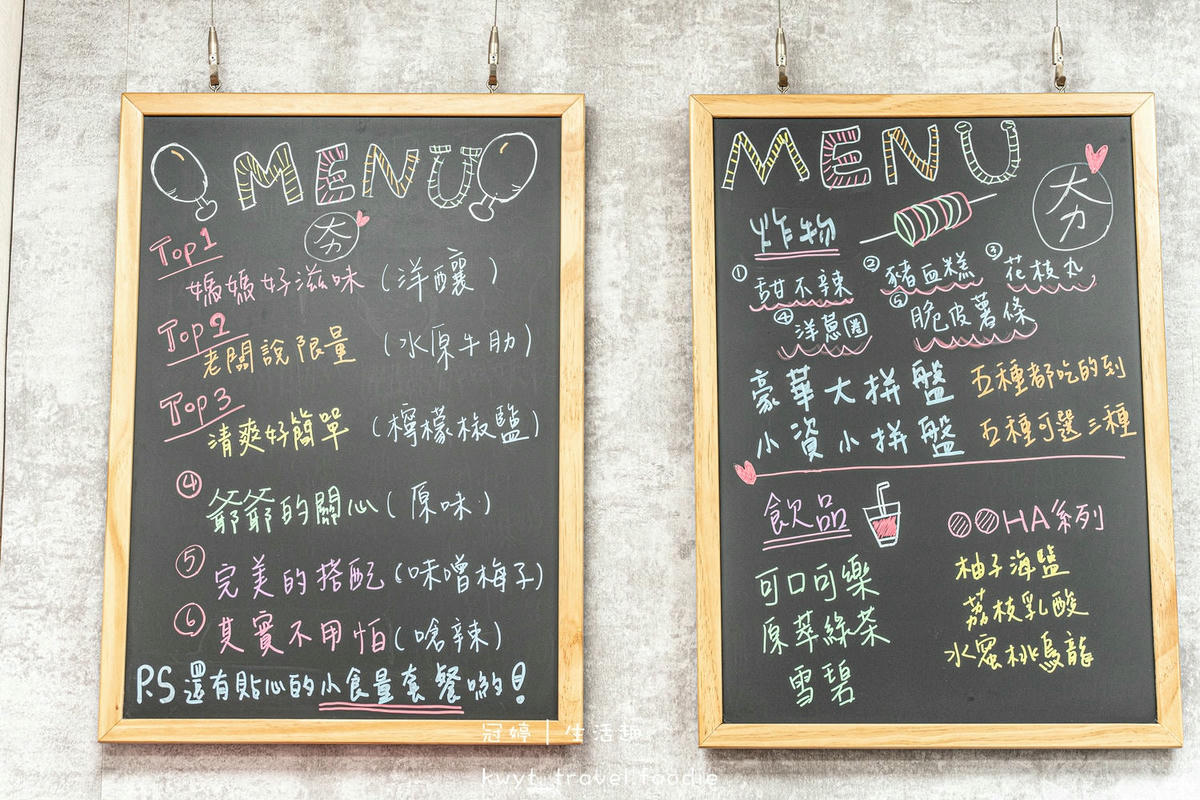 MENU
夯
Top1
媽媽好滋味 (洋釀)
Top2
老闆說限量 (水原牛肋)
Top3
清爽好簡單 (檸檬椒鹽)
④ 爺爺的關心 (原味)
⑤ 完美的搭配 (味噌梅子)
⑥ 其實不用怕 (嗆辣)
P.S 還有貼心的小食量套餐喲!
MENU
夯
炸物
① 甜不辣 ② 豬血糕 ③ 花枝丸
④ 洋蔥圈 ⑤ 脆皮薯條
豪華大拼盤 五種都吃的到
小資小拼盤 五種可選三種
飲品
可口可樂
原萃綠茶
雪碧
HA系列
柚子海鹽
荔枝乳酸
水蜜桃烏龍
冠婷 | 生活趣
kwyt_travel.foodie